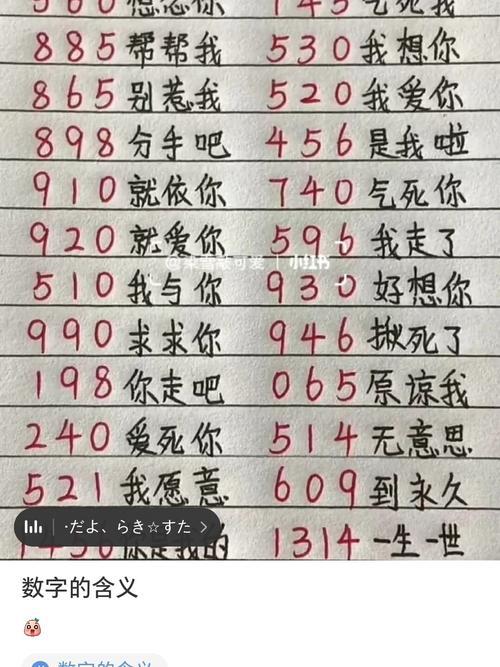 560 想念你 745 气死我
885 帮帮我 530 我想你
865 别惹我 520 我爱你
898 分手吧 456 是我啦
910 就依你 740 气死你
920 就爱你 596 我走了
小红书
510 我与你 930 好想你
990 求求你 946 揪死了
198 你走吧 065 原谅我
240 爱死你 514 无意思
521 我愿意 609 到永久
·だよ、らき☆すた
你是我的 1314 一生一世
数字的含义
数字的含义